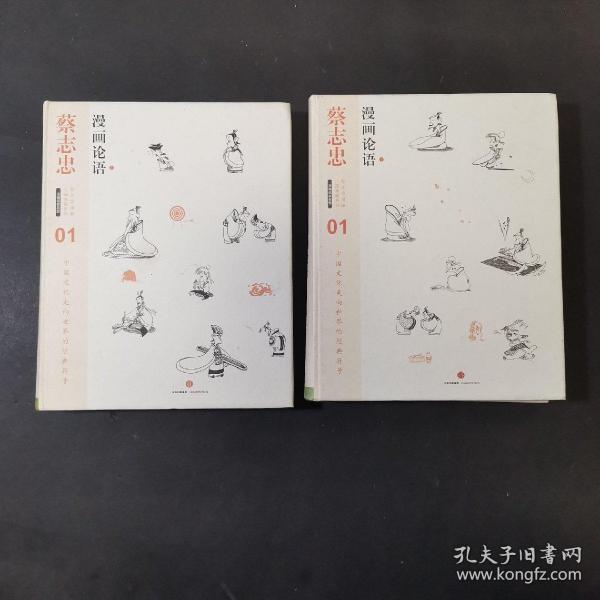 蔡志忠
漫画论语
01
中国文化走向世界的经典符号
蔡志忠
漫画论语
01
中国文化走向世界的经典符号
孔夫子旧书网
www.kongfz.com